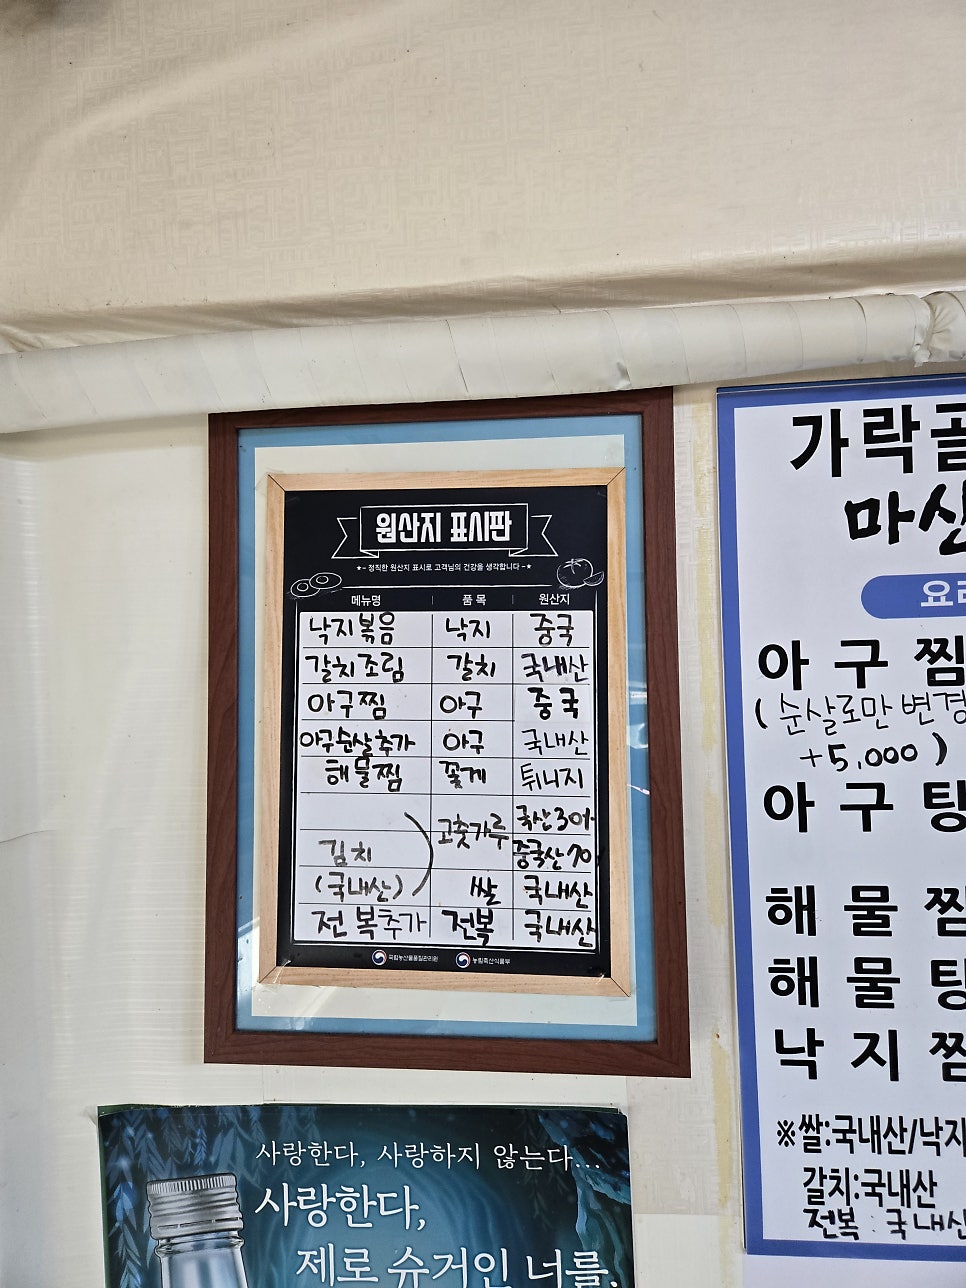 원산지 표시판
★- 정직한 원산지 표시로 고객님의 건강을 생각합니다 -★
메뉴명 품 목 원산지
낙지볶음 낙지 중국
갈치조림 갈치 국내산
아구찜 아구 중국
아구순살추가 아구 국내산
해물찜 꽃게 튀니지
고춧가루 국산30%
김치 중국산70%
(국내산) 쌀 국내산
전복추가 전복 국내산
국립농산물품질관리원 농림축산식품부
가락골
마산
요리
아 구 찜
( 순살로만 변경
+5,000 )
아 구 탕
해 물 찜
해 물 탕
낙 지 찜
※쌀:국내산/낙지
갈치:국내산
전복 : 국내산
사랑한다, 사랑하지 않는다...
사랑한다,
제로 슈거인 너를.